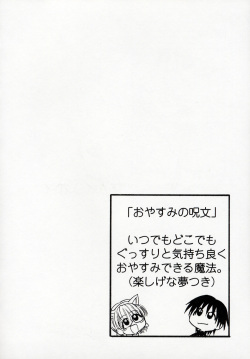 「おやすみの呪文」
いつでもどこでも
ぐっすりと気持ち良く
おやすみできる魔法。
（楽しげな夢つき）